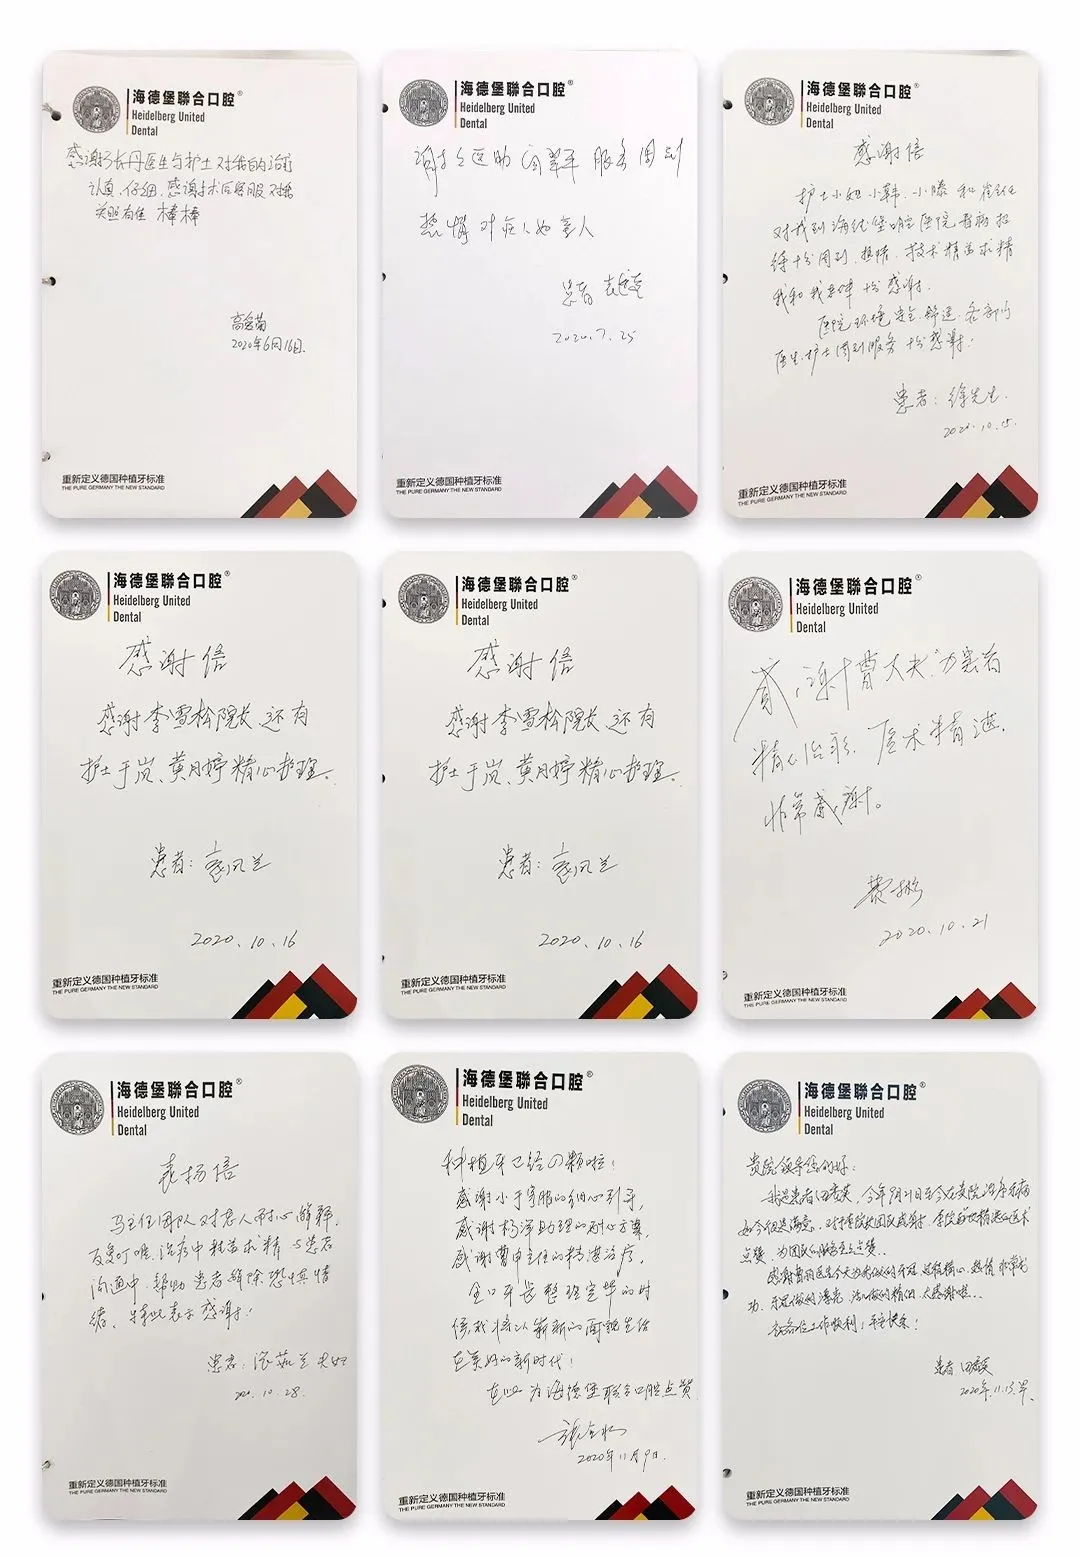 海德堡聯合口腔®
Heidelberg United
Dental
感谢张丹医生与护士对我的治疗
认真、仔细.感谢技术同客服对我
关照有佳 棒棒
2020年6月16日.
重新定义德国种植牙标准
THE PURE GERMANY THE NEW STANDARD
海德堡聯合口腔®
Heidelberg United
Dental
服务周到
热情对病人如亲人
患者
2020.7.25
重新定义德国种植牙标准
THE PURE GERMANY THE NEW STANDARD
海德堡聯合口腔®
Heidelberg United
Dental
感谢信
护士小妞小韩、小滕和崔主任
对我到海德堡口腔医院看病招
待十分周到、热情、技术精益求精
我和我老伴十分感谢.
医院环境安全、舒适、各部门
医生、护士周到服务十分感谢!
患者:徐先生.
2020.10.15.
重新定义德国种植牙标准
THE PURE GERMANY THE NEW STANDARD
海德堡聯合口腔®
Heidelberg United
Dental
感谢信
感谢李雪松院长、还有
护士于岚、黄月婷精心护理。
患者:
2020、10、16
重新定义德国种植牙标准
THE PURE GERMANY THE NEW STANDARD
海德堡聯合口腔®
Heidelberg United
Dental
感谢信
感谢李雪松院长、还有
护士于岚、黄月婷精心护理。
患者:
2020、10、16
重新定义德国种植牙标准
THE PURE GERMANY THE NEW STANDARD
海德堡聯合口腔®
Heidelberg United
Dental
感谢曹大夫为患者
精心治疗、医术精湛.
非常感谢。
2020.10.21
重新定义德国种植牙标准
THE PURE GERMANY THE NEW STANDARD
海德堡聯合口腔®
Heidelberg United
Dental
表扬信
马主任团队对患人耐心解释,
反复叮咛,治疗中精益求精、与患者
沟通中,帮助患者解除恐惧情
绪、特此表示感谢!
患者:
2020.10.28.
重新定义德国种植牙标准
THE PURE GERMANY THE NEW STANDARD
海德堡聯合口腔®
Heidelberg United
Dental
种植牙已经の颗啦!
感谢小于客服的细心引导,
感谢杨洋助理的耐心方案,
感谢曹申主任的精湛治疗,
全口牙齿整理完毕的时
候,我将以崭新的面貌生活
在美好的新时代!
在此为海德堡联合口腔点赞.
2020年11月9日.
重新定义德国种植牙标准
THE PURE GERMANY THE NEW STANDARD
海德堡聯合口腔®
Heidelberg United
Dental
贵院领导您们好:
我是患者田秀英,今年9月21日至今在贵院治疗牙病
点赞,为团队的服务点赞..
祝各位工作顺利!平安快乐!
患者 田秀英
2020年.11.13.早.
重新定义德国种植牙标准
THE PURE GERMANY THE NEW STANDARD